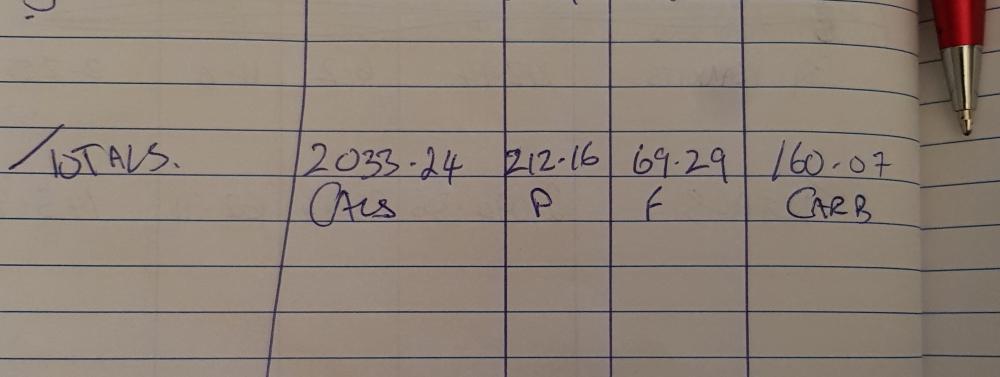 TOTALS. 2033.24 212.16 69.29 160.07
CALS P F CARB